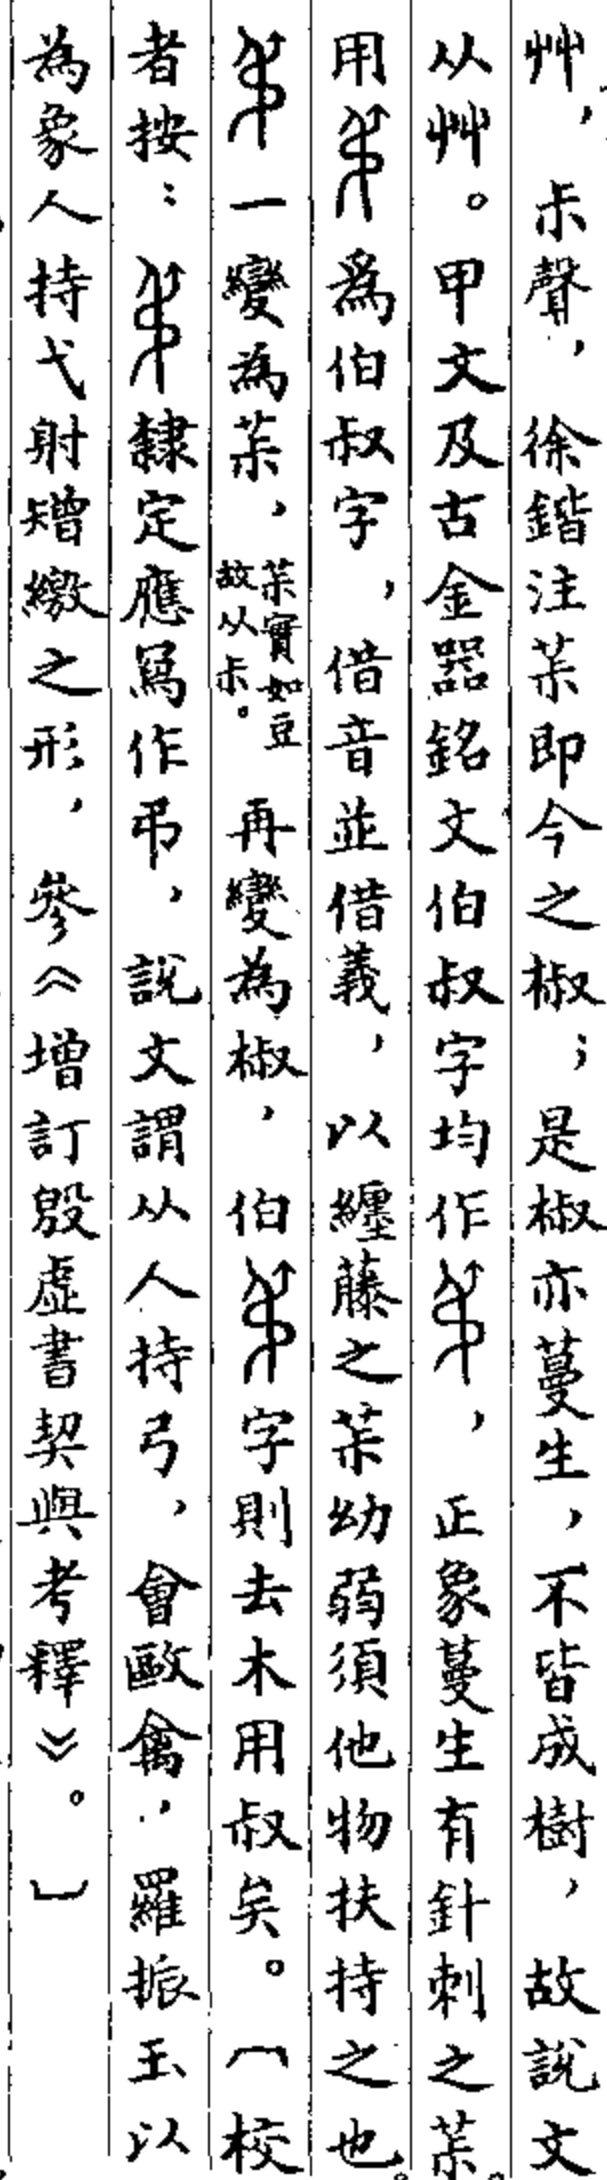 艸，尗聲，徐鍇注茮即今之椒；是椒亦蔓生，不皆成樹，故說文
从艸。甲文及古金器銘文伯叔字均作，正象蔓生有針刺之茮。
用為伯叔字，借音並借義，以纏藤之茮幼弱須他物扶持之也。
一變為茮，茮實如豆故从尗。再變為椒，伯字則去木用叔矣。〔校
者按：隸定應寫作弔，說文謂从人持弓，會敺禽，羅振玉以
為象人持弋射矰繳之形，參《增訂殷虛書契與考釋》。〕